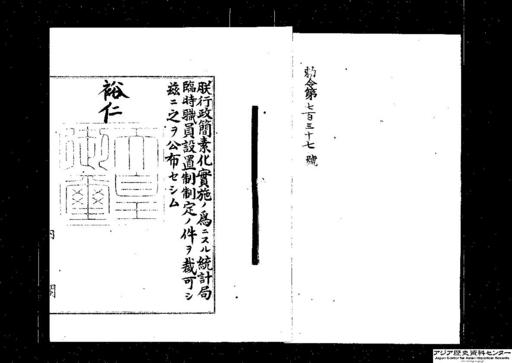 勅令第七百三十七號
朕行政簡素化實施ノ爲ニスル統計局
臨時職員設置制制定ノ件ヲ裁可シ
茲ニ之ヲ公布セシム
裕仁
天皇
御璽
内閣
アジア歴史資料センター
Japan Center for Asian Historical Records